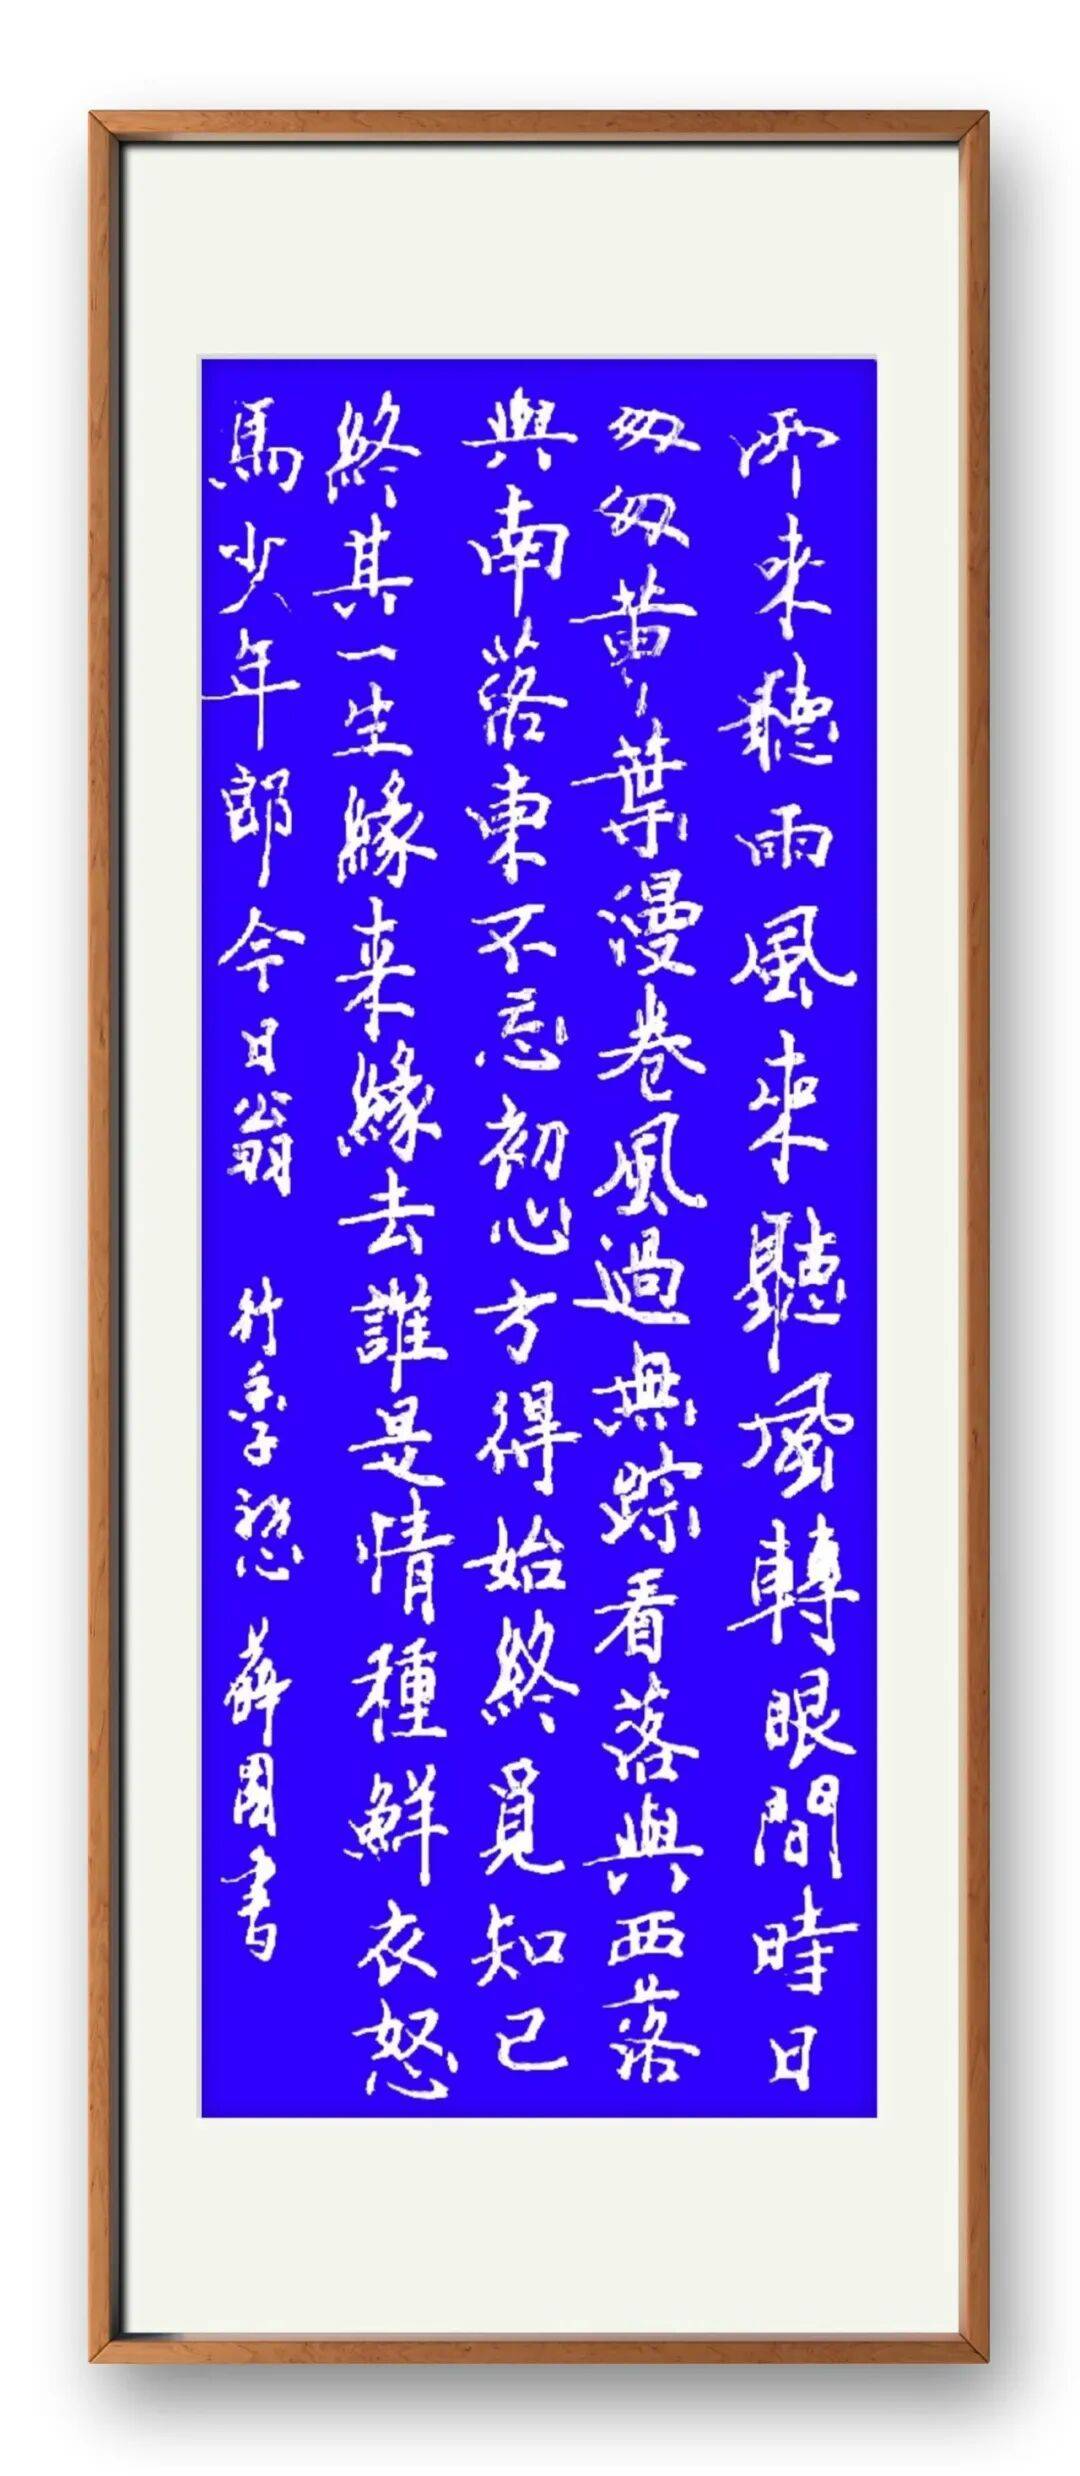 雨來聽雨風來聽風轉眼間時日
匆匆黄葉漫卷風過無踪看落與西落
與南落東不忘初心方得始終覓知己
終其一生緣来緣去誰是情種鮮衣怒
馬少年郎今日翁 行香子 薛國書